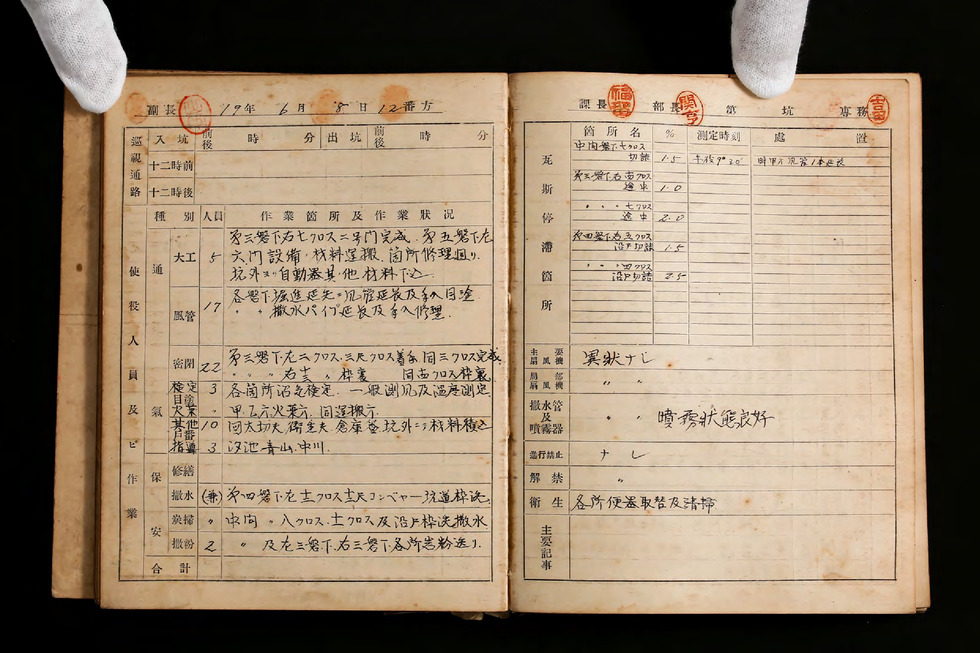 副長 19年 6月 8日 12番方
巡視通路 入坑 前後 時 分 出坑 前後 時 分
十二時前
十二時後
使役人員及ビ作業
種別 人員 作業箇所及作業狀况
通氣
大工 5 第三盤下右七クロス二号門完成. 第五盤下左
六門設備, 材料運搬, 箇所修理廻リ.
坑外ヨリ自動器其ノ他材料下込
風管 17 各盤下掘進延先ニ風管延長及手入目塗
〃 〃 撒水パイプ延長及手入修理.
密閉 22 第三盤下左二クロス. 三尺クロス着手 同三クロス完成
〃 〃 右 〃 枠裏 同西クロス枠裏
檢定 3 各箇所沼气検定. 一般測風及温度測定
目塗
火薬 〃 甲乙方火薬方. 同運搬方.
其他 10 同大切夫 衛生夫 倉庫番 坑外ニテ材料積込
戸番
指導 3 汐池 青山. 中川.
保安
修繕
撒水 (兼) 第四盤下左 クロス コンベヤー坑道枠洗.
炭掃 〃 中間 〃 八クロス. 士クロス及沿戸枠洗撒水
撒粉 2 〃 及左三盤下. 右三盤下. 各所岩粉送リ.
合計
課長 部長 第 坑 專務
福留
関
吉富
瓦斯停滯箇所
箇所名 % 測定時刻 處置
中間盤下七クロス
切詰 1.5 午後9°30' 風管1本延長
第三盤下右西クロス
途中 1.0
〃 〃 七クロス
途中 2.0
第四盤下右五クロス
沿戸切詰 1.5
〃 〃 四クロス
沿戸切詰 2.5
主要扇風機 異狀ナシ
局部扇風機 〃 〃
撒水管及噴霧器 〃 〃 噴霧狀態良好
進行禁止 ナシ
解禁 〃
衞生 各所便器取替及清掃
主要記事